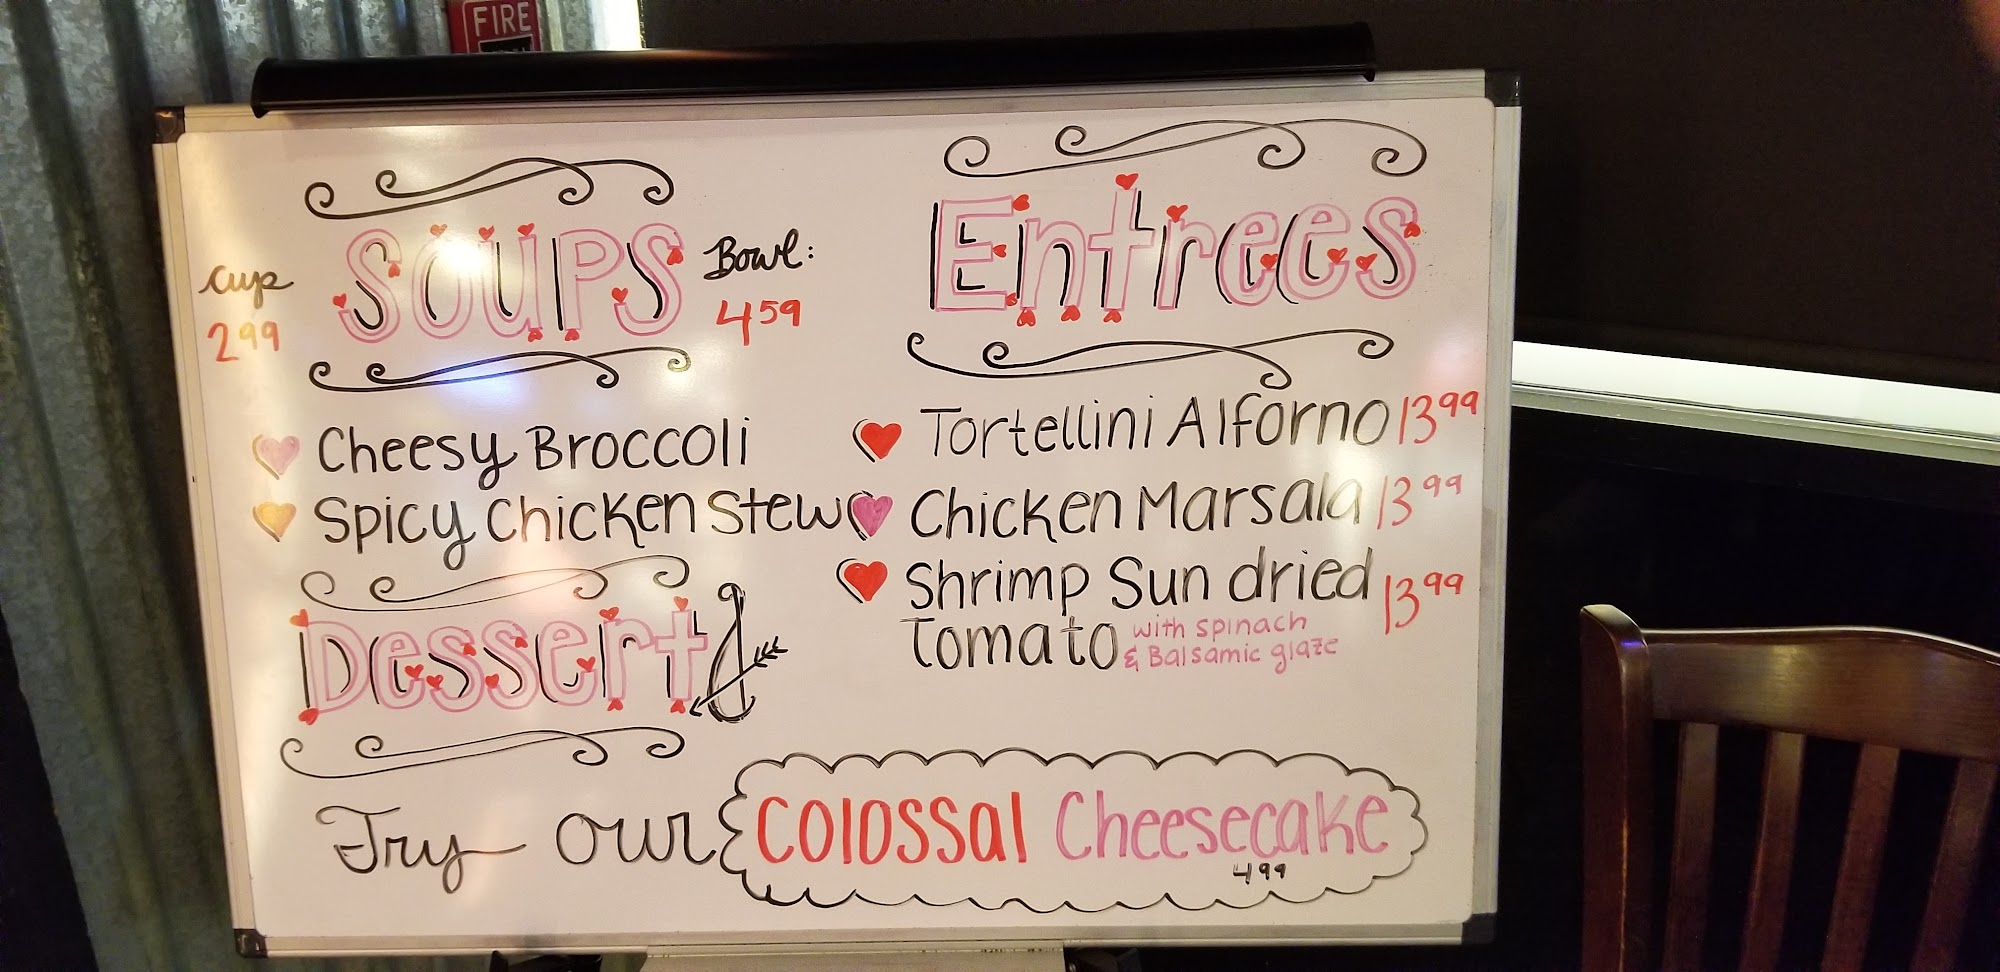 FIRE
Soups
Cup
2.99
Bowl:
4.59
Cheesy Broccoli
Spicy Chicken Stew
Dessert
Entrees
Tortellini Alforno 13 99
Chicken Marsala 13 99
Shrimp Sun dried
Tomato with spinach
& Balsamic glaze
13 99
Try our Colossal Cheesecake
4 99